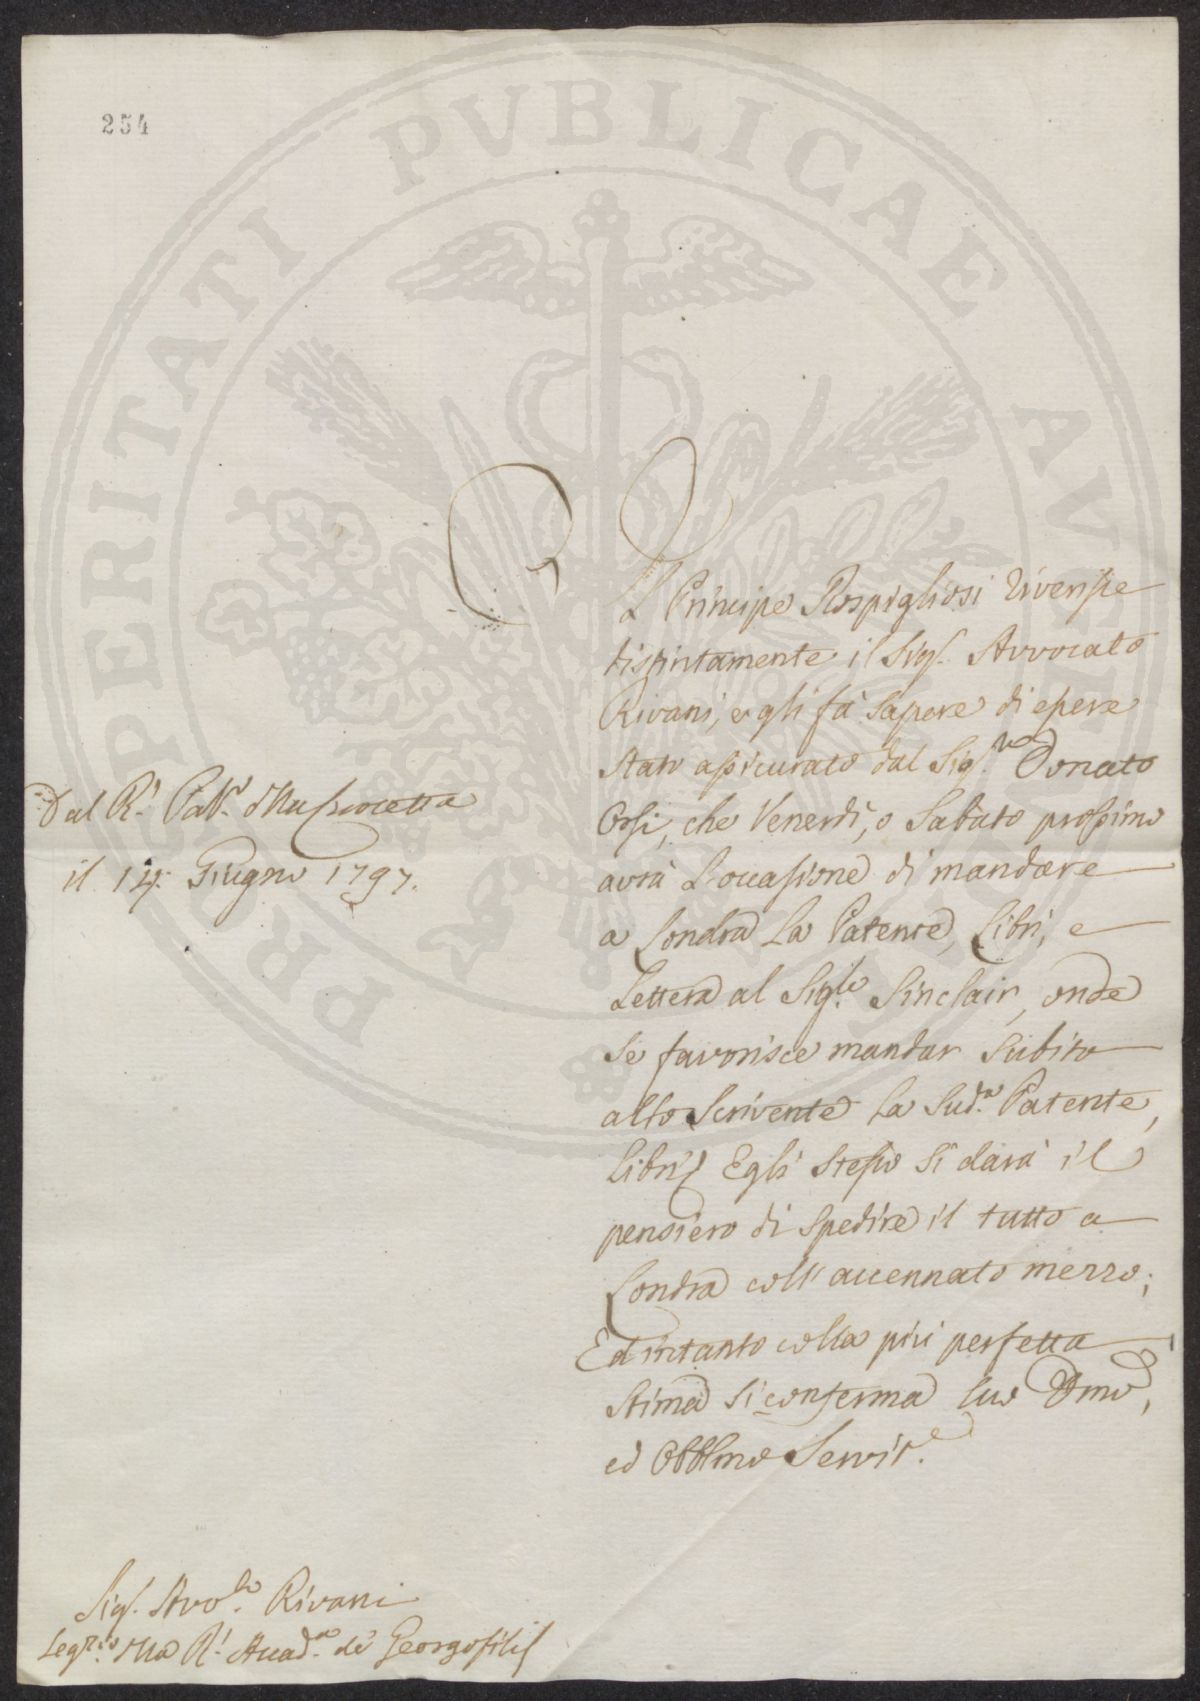 254
PROSPERITATI PVBLICAE AVGENDAE
Il Principe Rospigliosi riverisce
distintamente il Sig.r Avvocato
Rivani, e gli fà sapere di essere
stato assicurato dal Sig.re Donato
Orsi, che Venerdì, o Sabato prossimo
avrà l'occasione di mandare
a Londra la Patente, Libri, e
Lettera al Sig.re Sinclair, onde
se favorisce mandar subito
allo scrivente la Sud.a Patente,
Libri, Egli stesso si darà il
pensiero di spedire il tutto a
Londra coll'accennato mezzo;
Ed intanto colla più perfetta
stima si conferma suo Dmo,
ed Obblmo Servit.e
Dal R.l Pal.o della Crocetta
il 14: Giugno 1797.
Sig.r Avv.to Rivani
Seg.rio della R.l Accad.a de' Georgofili